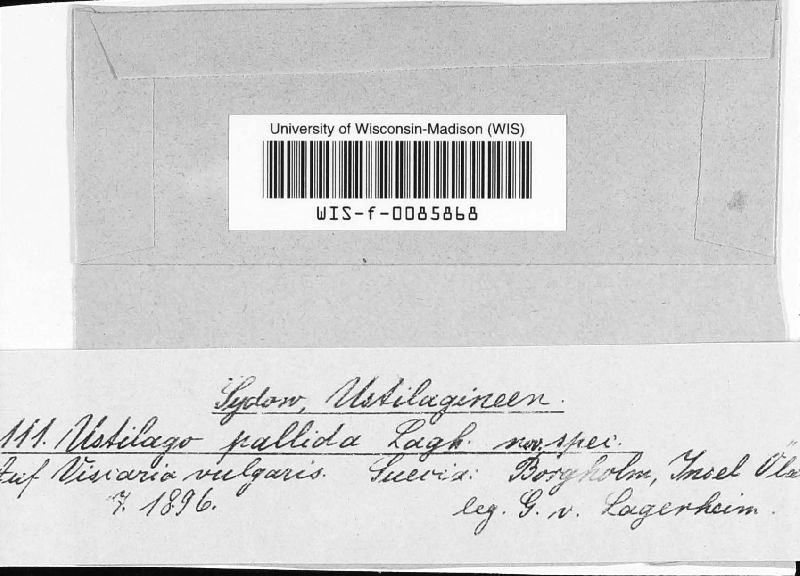 University of Wisconsin-Madison (WIS)
WIS-f-0085868
Sydow, Ustilagineen.
111. Ustilago pallida Lagh. nov. spec.
Auf Viscaria vulgaris. Suecia: Borgholm, Insel Öla
7. 1896. leg. G. v. Lagerheim.